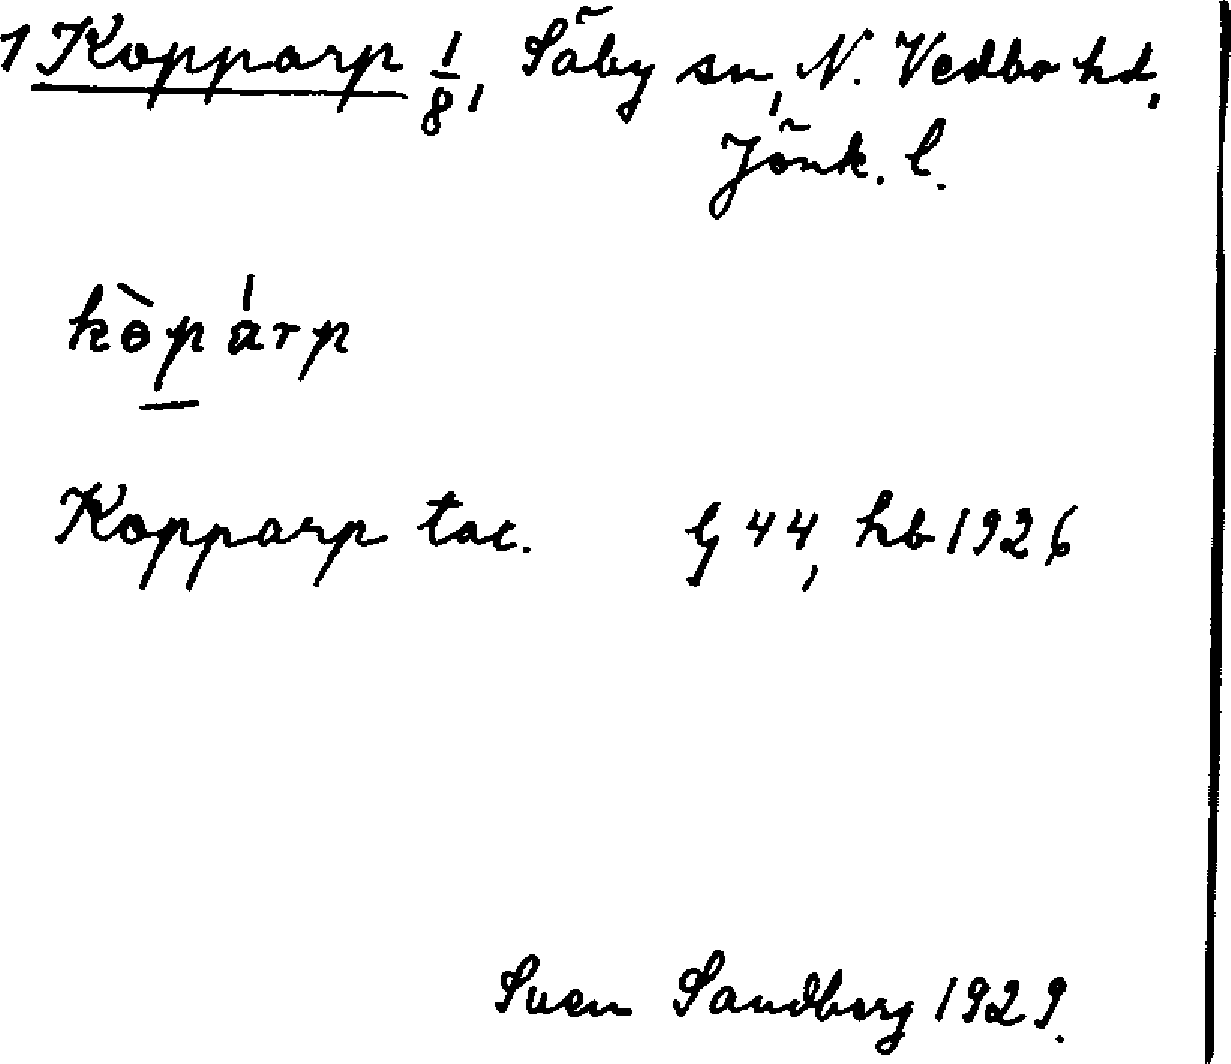 1 Kopparp 1/8, Säby sn, N. Vedbo hd,
Jönk. l.
kɵ̀párp
Kopparp tac. lj 44, hb 1926
Sven Sandberg 1929.